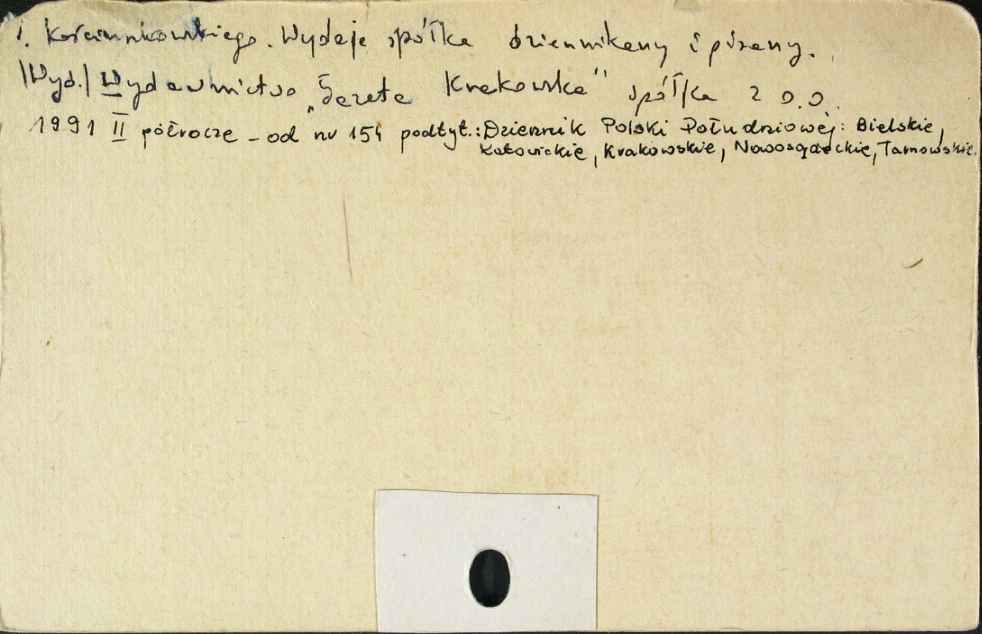 i. Kościuszkowskiego. Wydaje spółka dziennikarzy i pisarzy.
/Wyd./ Wydawnictwo „Gazeta Krakowska” spółka z o.o.
1991 II półrocze - od nr 154 podtyt.: Dziennik Polski Południowej: Bielskie,
Katowickie, Krakowskie, Nowosądeckie, Tarnowskie.